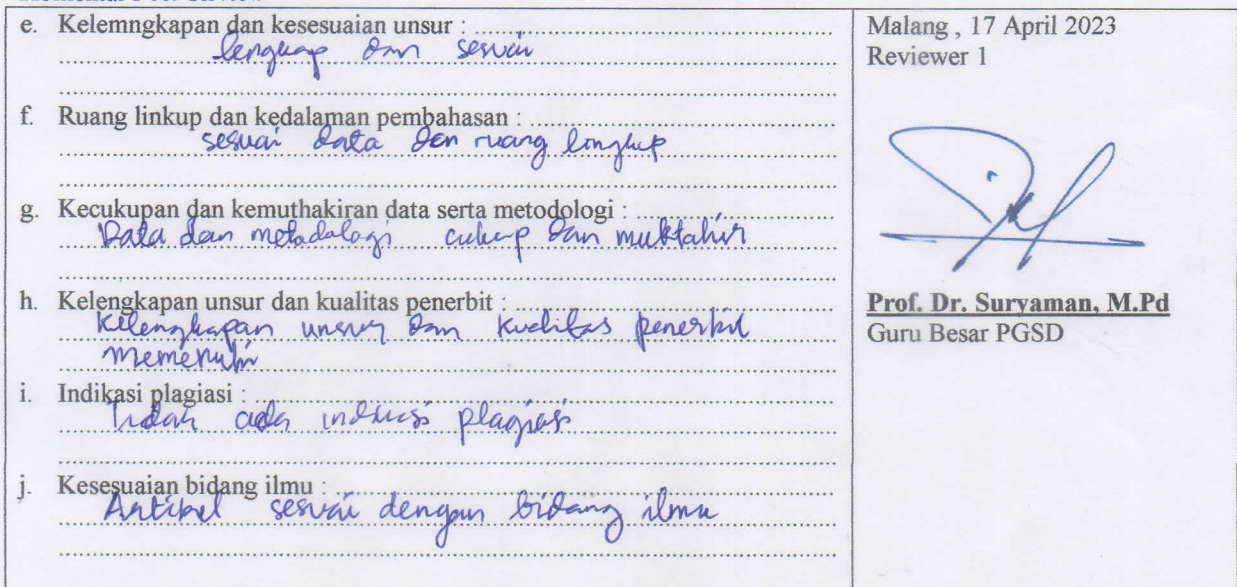 e. Kelemngkapan dan kesesuaian unsur :
lengkap dan sesuai
f. Ruang linkup dan kedalaman pembahasan :
sesuai data dan ruang lingkup
g. Kecukupan dan kemuthakiran data serta metodologi :
Data dan metodologi cukup dan muktahir
h. Kelengkapan unsur dan kualitas penerbit :
Kelengkapan unsur dan kualitas penerbit
memenuhi
i. Indikasi plagiasi :
Tidak ada indikasi plagiasi
j. Kesesuaian bidang ilmu :
Artikel sesuai dengan bidang ilmu
Malang , 17 April 2023
Reviewer 1
Prof. Dr. Suryaman, M.Pd
Guru Besar PGSD